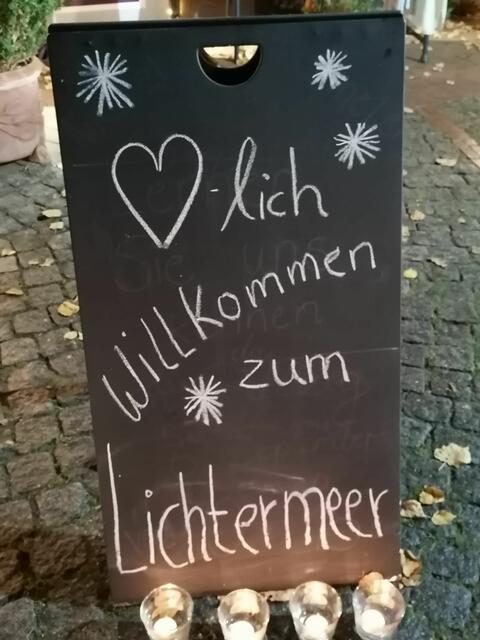 ♡-lich
Willkommen
zum
Lichtermeer